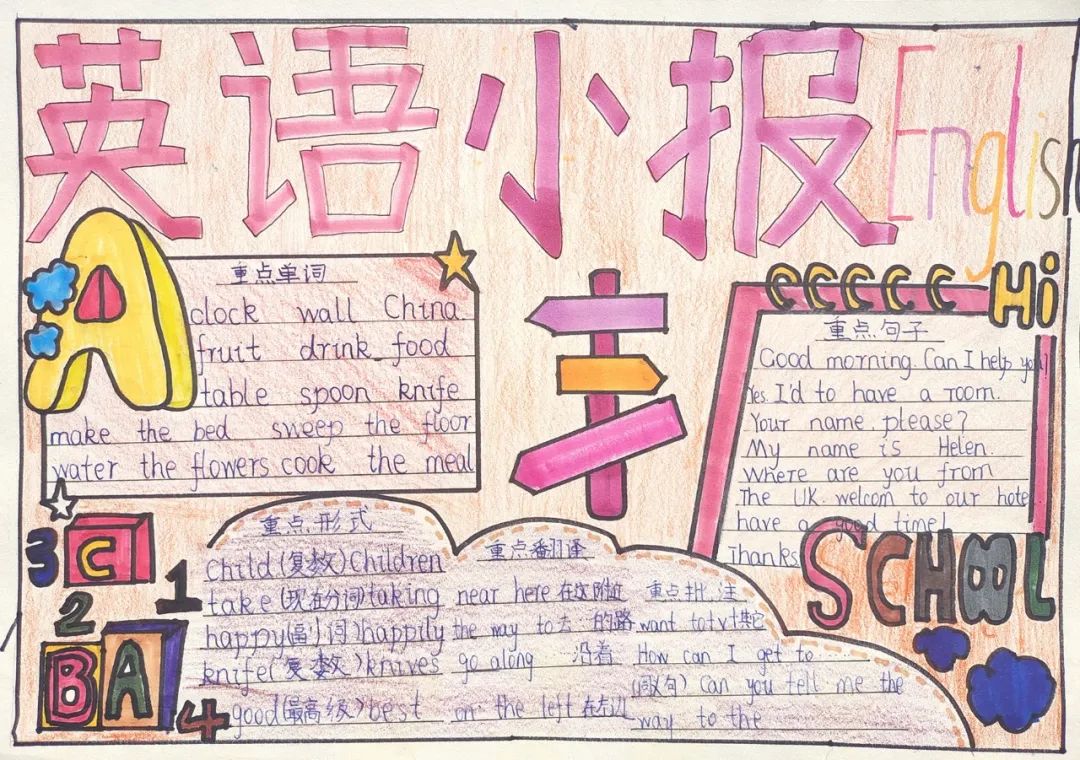 英语小报
English
重点单词
clock wall China.
fruit drink food
table spoon knife
make the bed sweep the floor
water the flowers cook the meal
A
Hi
重点句子
Good morning Can I help you
Yes. I'd to have a room.
Your name, please?
My name is Helen.
Where are you from
The UK. welcom to our hotel.
have a good time!
Thanks
SCHOOL
重点形式
Child(复数)Children
take(现在分词)taking
happy(副词)happily
knife(复数)knives
good(最高级)best
重点翻译
near here 在这附近
the way to 去 的路
go along 沿着
on the left 在左边
重点批注
want to+v+其它
How can I get to ......
(同义句) Can you tell me the
way to the
3 C 1
2
B A 4